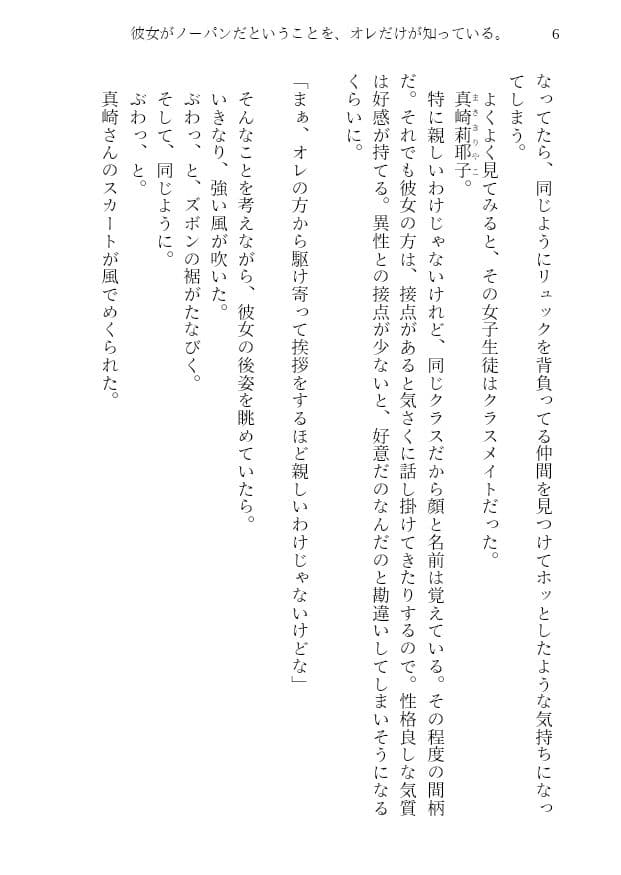 彼女がノーパンだということを、オレだけが知っている。
6
なってたら、同じようにリュックを背負ってる仲間を見つけてホッとしたような気持ちになっ
てしまう。
よくよく見てみると、その女子生徒はクラスメイトだった。
真崎莉耶子。
まさきりやこ
特に親しいわけじゃないけれど、同じクラスだから顔と名前は覚えている。その程度の間柄
だ。それでも彼女の方は、接点があると気さくに話し掛けてきたりするので。性格良しな気質
は好感が持てる。異性との接点が少ないと、好意だのなんだのと勘違いしてしまいそうになる
くらいに。
「まぁ、オレの方から駆け寄って挨拶をするほど親しいわけじゃないけどな」
そんなことを考えながら、彼女の後姿を眺めていたら。
いきなり、強い風が吹いた。
ぶわっ、と、ズボンの裾がたなびく。
そして、同じように。
ぶわっ、と。
真崎さんのスカートが風でめくられた。